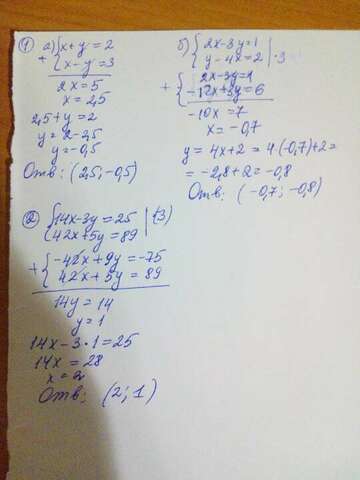 ① а) {x+y=2
+ {x-y=3
2x=5
x=2,5
2,5+y=2
y=2-2,5
y=-0,5
Отв: (2,5; -0,5)
б) {2x-3y=1
{y-4x=2 |·3
+ {2x-3y=1
{-12x+3y=6
-10x=7
x=-0,7
y=4x+2=4(-0,7)+2=
=-2,8+2=-0,8
Отв: (-0,7; -0,8)
② {14x-3y=25 |(-3)
{42x+5y=89
+ {-42x+9y=-75
{42x+5y=89
14y=14
y=1
14x-3·1=25
14x=28
x=2
Отв: (2; 1)